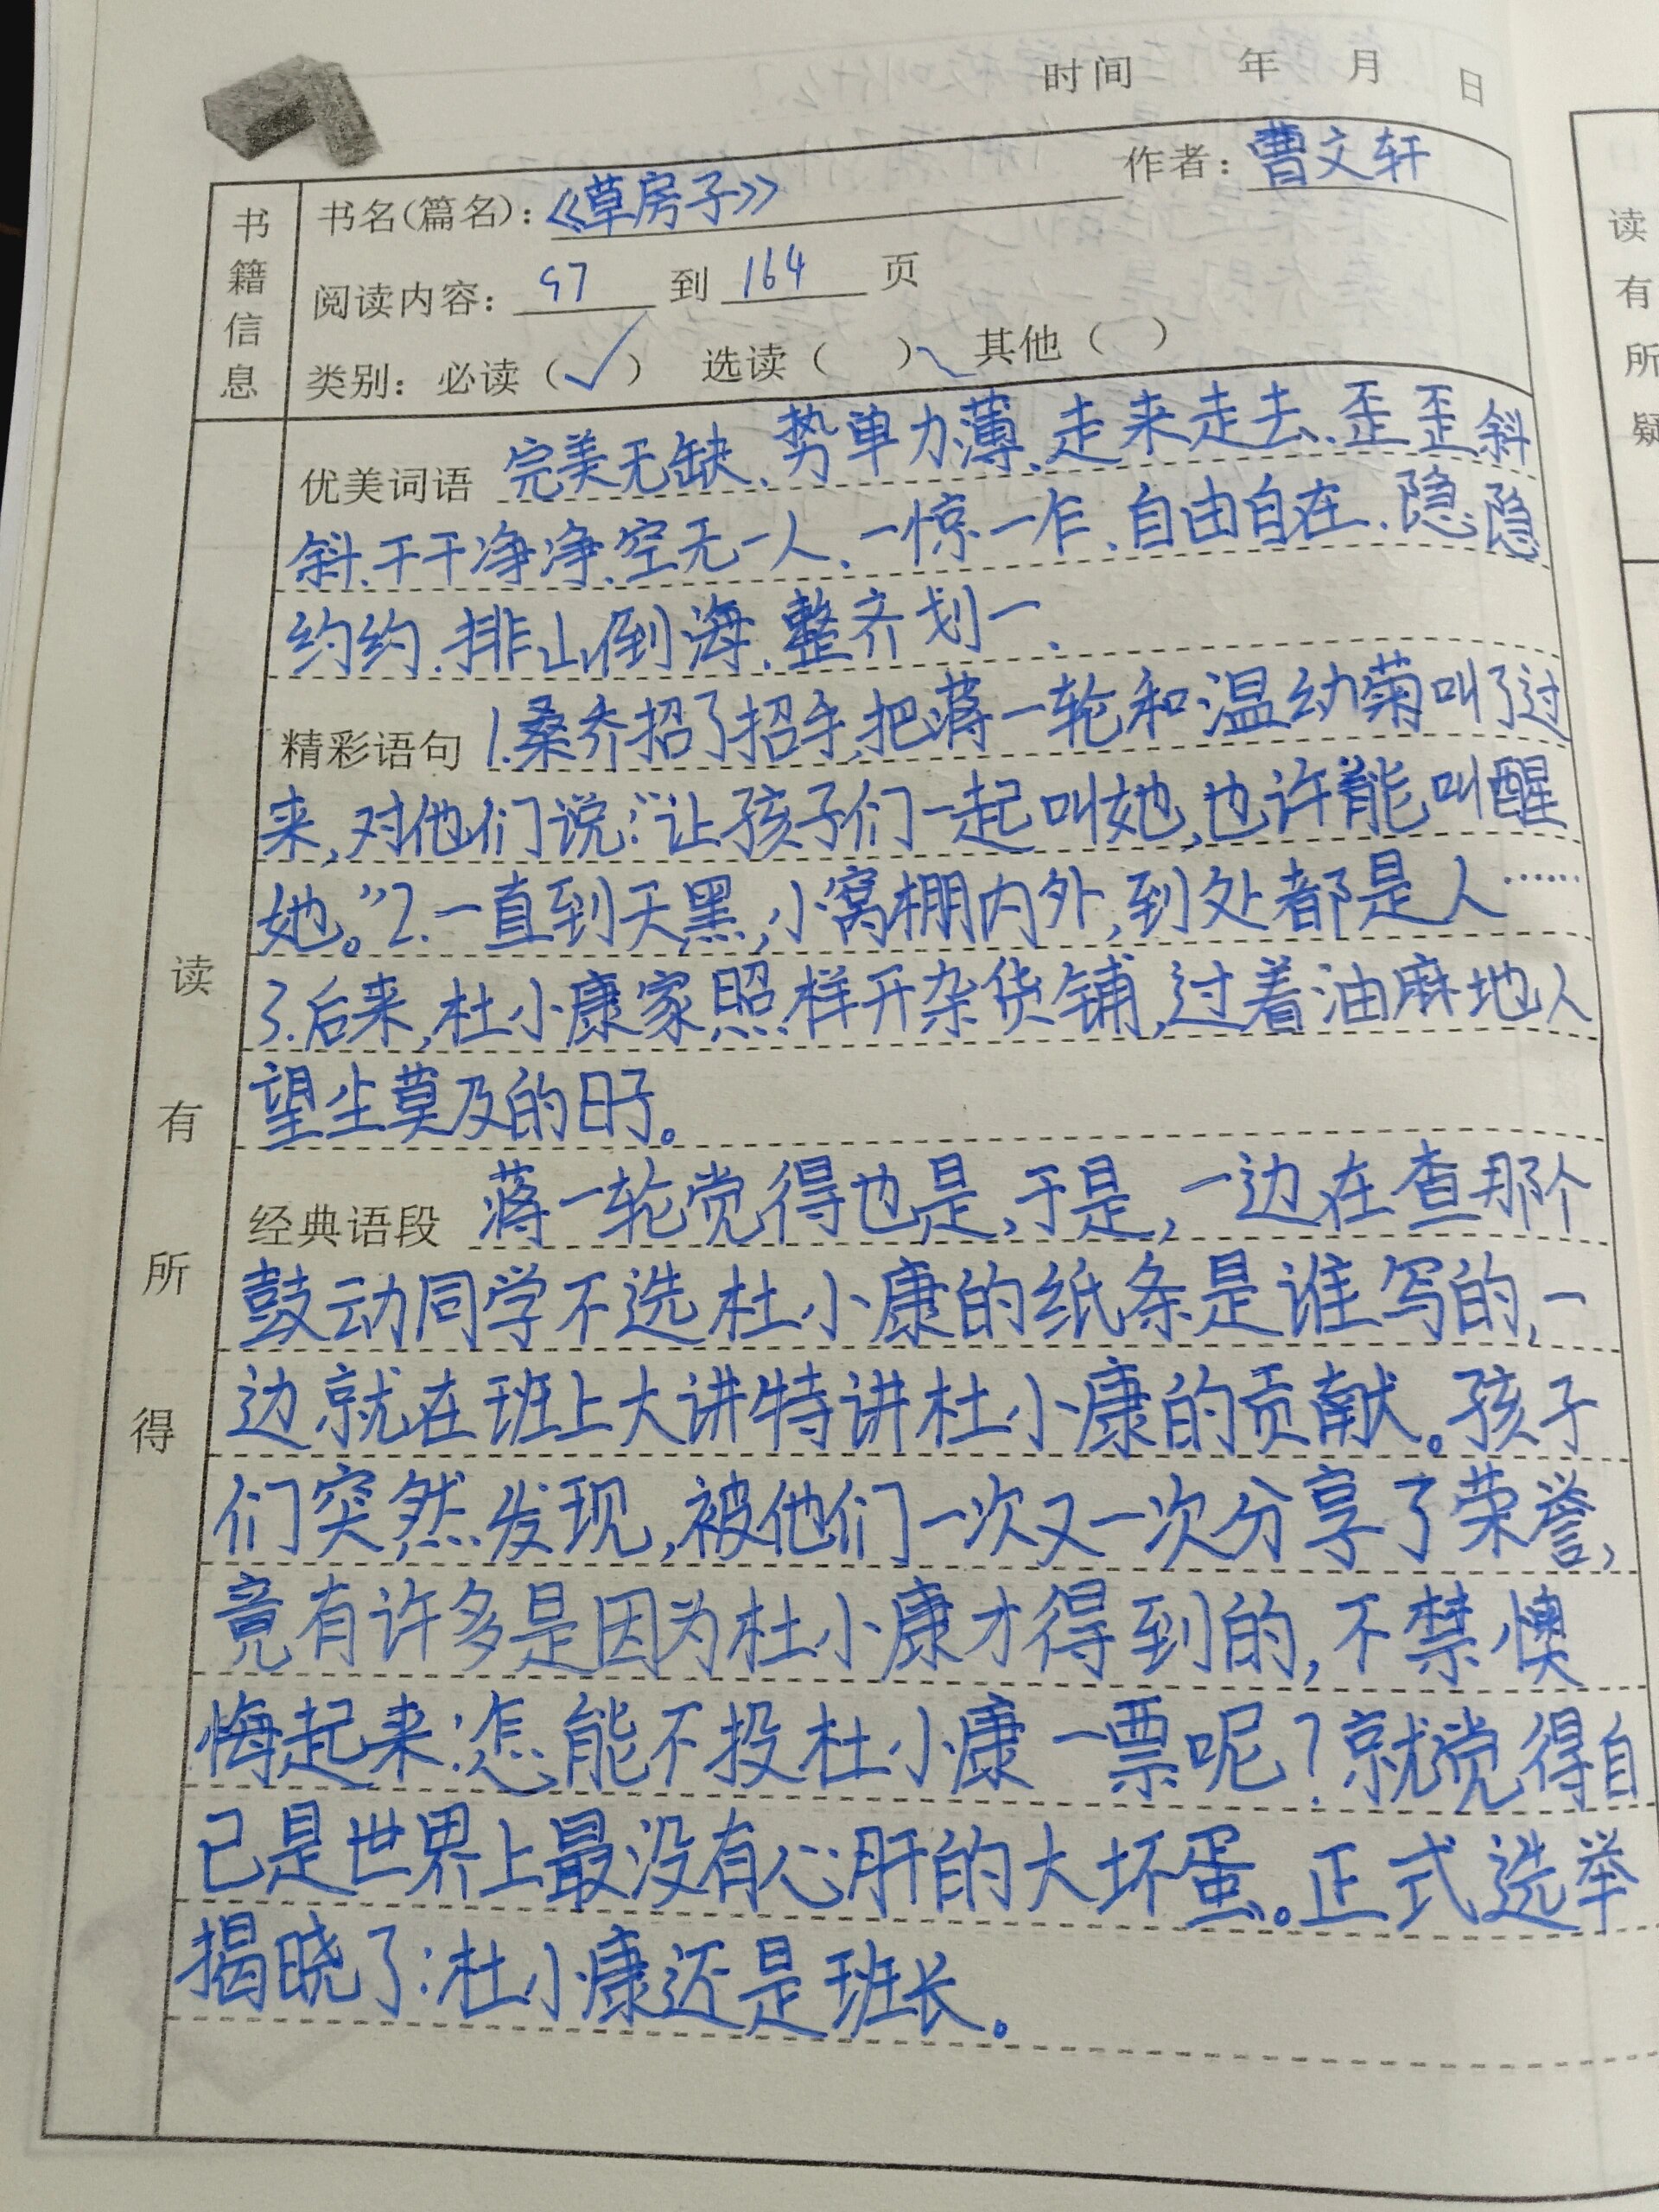 时间 年 月 日
书名(篇名): 《草房子》 作者: 曹文轩
阅读内容: 97 到 164 页
类别: 必读 (✓) 选读 ( ) 其他 ( )
书籍信息
优美词语 完美无缺、势单力薄、走来走去、歪歪斜
斜、干干净净、空无一人、一惊一乍、自由自在、隐隐
约约、排山倒海、整齐划一、
精彩语句 1.桑乔招了招手,把蒋一轮和温幼菊叫了过
来,对他们说:“让孩子们一起叫她,也许能叫醒
她。”2.一直到天黑,小窝棚内外,到处都是人……
3.后来,杜小康家照样开杂货铺,过着油麻地人
望尘莫及的日子。
经典语段 蒋一轮觉得也是,于是,一边在查那个
鼓动同学不选杜小康的纸条是谁写的,一
边就在班上大讲特讲杜小康的贡献。孩子
们突然发现,被他们一次又一次分享了荣誉,
竟有许多是因为杜小康才得到的,不禁懊
悔起来:怎能不投杜小康一票呢?就觉得自
己是世界上最没有心肝的大坏蛋。正式选举
揭晓了:杜小康还是班长。
读有所得
读有所疑